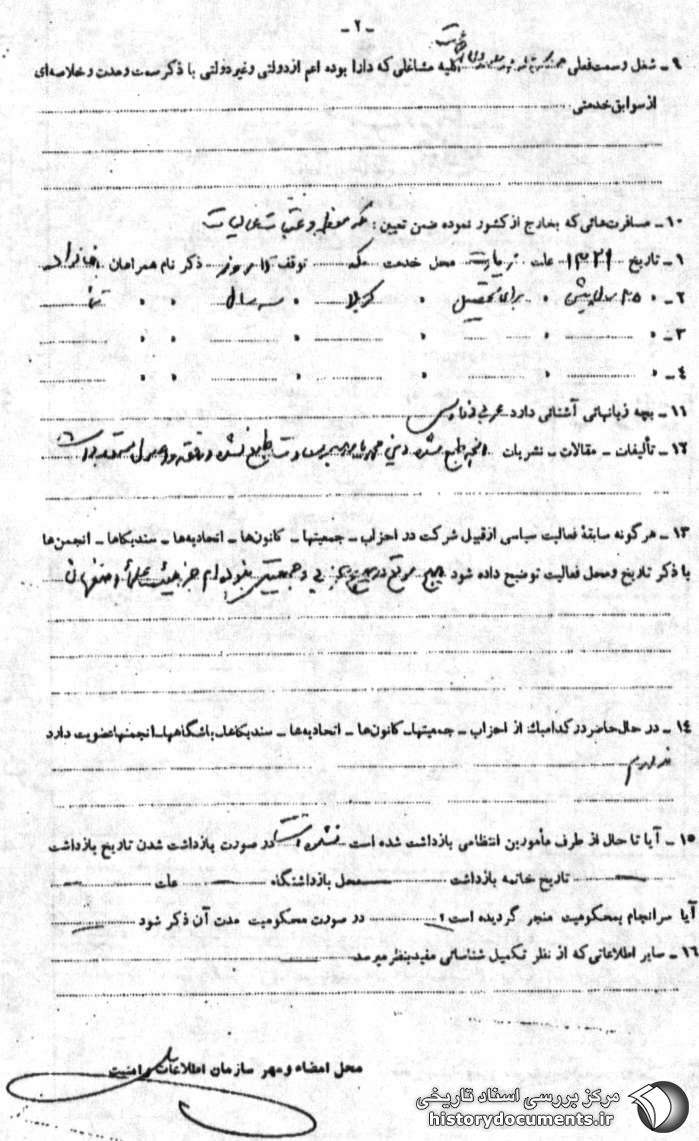 ـ ۲ ـ
۹ ـ شغل وسمت فعلی کلیه مشاغلی که دارا بوده اعم از دولتی و غیر دولتی با ذکر سمت و مدت و خلاصه‌ای
از سوابق خدمتی
۱۰ ـ مسافرت‌هائی که بخارج از کشور نموده ضمن تعیین : مکه معظمه و عتبات عالیات
۱ ـ تاریخ علت زیارت محل خدمت مکه توقف روز ذکر نام همراهان
۲ ـ " " برای تحصیل " کربلا " سه سال " "
۳ ـ " " " " " "
۴ ـ " " " " " "
۱۱ ـ بچه زبانهائی آشنائی دارد عربی فارسی
۱۲ ـ تألیفات ـ مقالات ـ نشریات
۱۳ ـ هر گونه سابقهٔ فعالیت سیاسی از قبیل شرکت در احزاب ـ جمعیتها ـ کانون‌ها ـ اتحادیه‌ها ـ سندیکاها ـ انجمن‌ها
با ذکر تاریخ و محل فعالیت توضیح داده شود هیچ موقع در هیچ حزبی و جمعیتی نبوده‌ام جز هیئت علمیه اصفهان
۱۴ ـ در حال حاضر در کدامیك از احزاب ـ جمعیتها ـ کانون‌ها ـ اتحادیه‌ها ـ سندیکاها ـ باشگاهها ـ انجمنها عضویت دارد
ندارم
۱۵ ـ آیا تا حال از طرف مأمورین انتظامی بازداشت شده است نشده است در صورت بازداشت شدن تاریخ بازداشت
تاریخ خاتمه بازداشت محل بازداشتگاه علت
آیا سرانجام بمحکومیت منجر گردیده است در صورت محکومیت مدت آن ذکر شود
۱۶ ـ سایر اطلاعاتی که از نظر تکمیل شناسائی مفید بنظر میرسد
محل امضاء و مهر سازمان اطلاعات و امنیت
مرکز بررسی اسناد تاریخی
historydocuments.ir